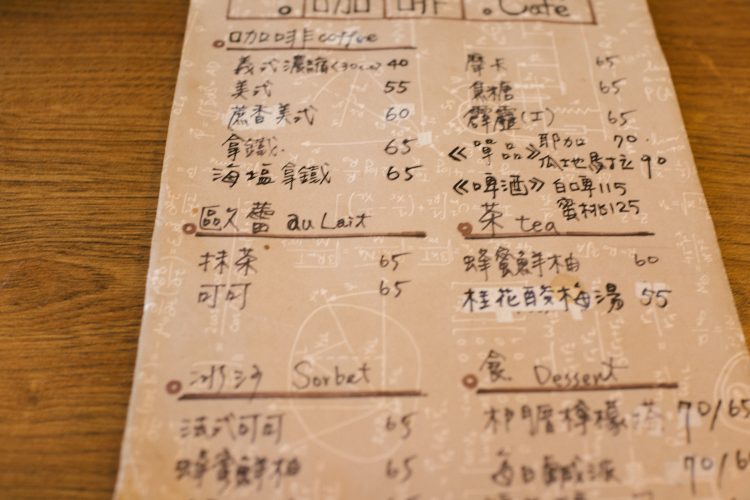 咖啡 Cafe
咖啡 coffee
義式濃縮<30cc> 40
美式 55
蔗香美式 60
拿鐵 65
海塩拿鐵 65
摩卡 65
焦糖 65
霹靂(I) 65
《單品》耶加 70
瓜地馬拉 90
《啤酒》白啤 115
蜜桃 125
歐蕾 au Lait
抹茶 65
可可 65
茶 tea
蜂蜜鮮柚 60
桂花酸梅湯 55
冰沙 Sorbet
法式可可 65
蜂蜜鮮柚 65
食 Dessert
檸檬塔 70/65
每日鹹派 70/65